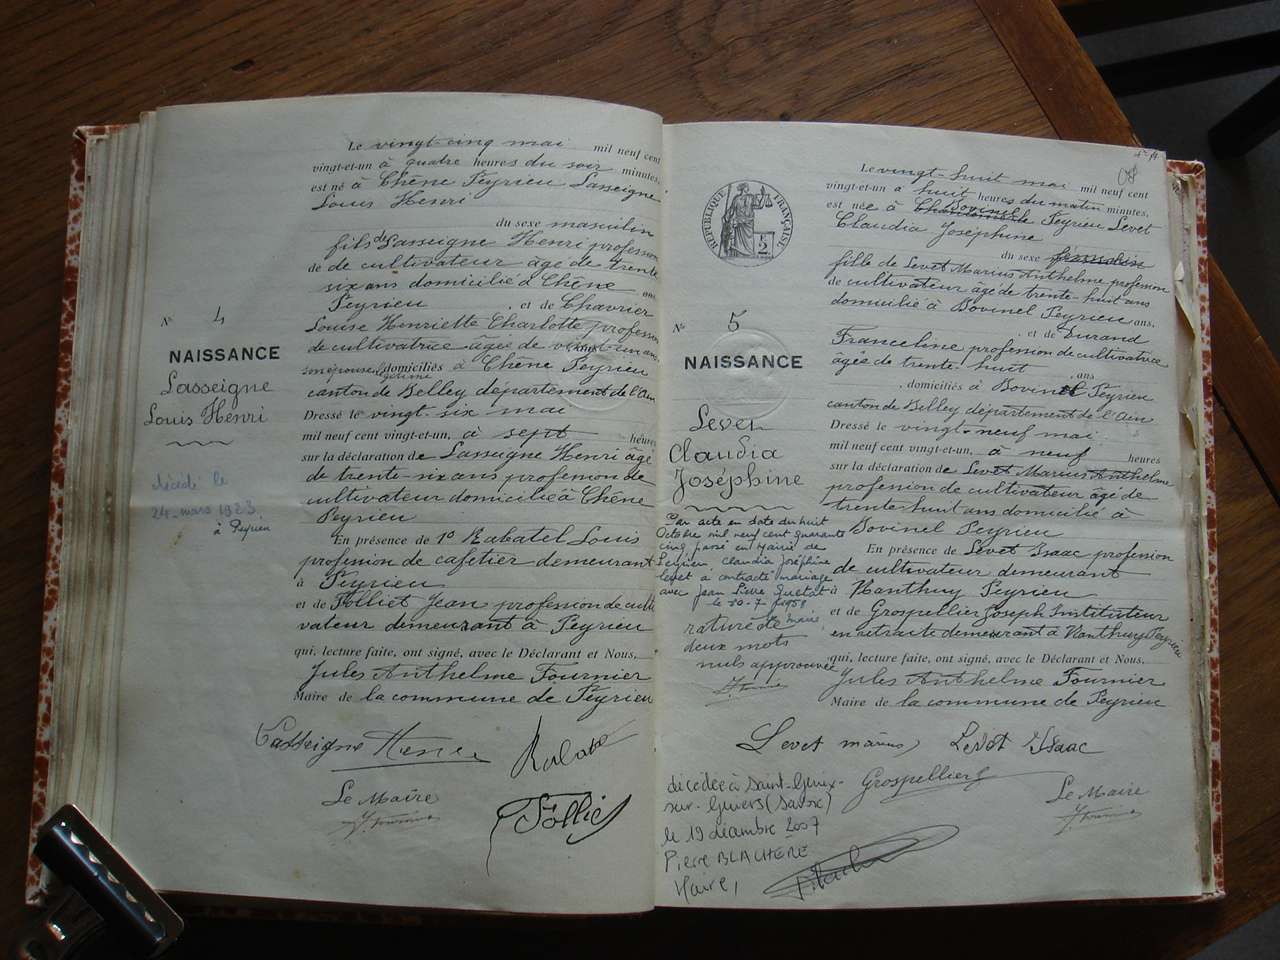 Le vingt-cinq mai mil neuf cent
vingt-et-un à quatre heures du soir minutes,
est né à Chêne Peyrieu Lasseigne
Louis Henri
du sexe masculin
fils de Lasseigne Henri profession
de de cultivateur âgé de trente
six ans domicilié à Chêne ans,
Peyrieu , et de Chavrier
Louise Henriette Charlotte profession
de cultivatrice âgée de vingt-un ans
son épouse légitime domiciliés à Chêne Peyrieu
canton de Belley département de l'Ain
Dressé le vingt six mai
mil neuf cent vingt-et-un, à sept heures
sur la déclaration de Lasseigne Henri âgé
de trente-six ans profession de
cultivateur domicilié à Chêne
Peyrieu
En présence de 1o Rabatel Louis
profession de cafetier demeurant
à Peyrieu
et de Folliet Jean profession de culti
vateur demeurant à Peyrieu
qui, lecture faite, ont signé, avec le Déclarant et Nous,
Jules Anthelme Fournier
Maire de la commune de Peyrieu
No 4
NAISSANCE
Lasseigne
Louis Henri
décédé le
24 mars 1923
à Peyrieu
Lasseigne Henri
Rabatel
Le Maire
J. Fournier
Folliet
Le vingt-huit mai mil neuf cent
vingt-et-un à huit heures du matin minutes,
est née à Bovinel Peyrieu Levet
Claudia Joséphine
du sexe féminin
fille de Levet Marius Anthelme profession
de cultivateur âgé de trente-huit ans
domicilié à Bovinel Peyrieu ans,
et de Durand
Franceline profession de cultivatrice
âgée de trente-huit ans
, domiciliés à Bovinel Peyrieu
canton de Belley département de l'Ain
Dressé le vingt-neuf mai
mil neuf cent vingt-et-un, à neuf heures
sur la déclaration de Levet Marius Anthelme
profession de cultivateur âgé de
trente-huit ans domicilié à
Bovinel Peyrieu
En présence de Levet Isaac profession
de cultivateur demeurant
à Nanthuy Peyrieu
et de Grospellier Joseph Instituteur
en retraite demeurant à Nanthuy Peyrieu
qui, lecture faite, ont signé, avec le Déclarant et Nous,
Jules Anthelme Fournier
Maire de la commune de Peyrieu
RÉPUBLIQUE FRANÇAISE
No 5
NAISSANCE
Levet
Claudia
Joséphine
Par acte en date du huit
Octobre mil neuf cent quarante
cinq passé en Mairie de
Peyrieu, Claudia Joséphine
Levet a contracté mariage
avec Jean Pierre Guetat
le 30-7-1958
Le Maire,
raturé de
deux mots
nuls approuvée
J. Fournier
Levet marius Levet Isaac
Grospellier J
Le Maire
J. Fournier
décédée à Saint-Genix-
sur-Guiers (Savoie)
le 19 décembre 2007
Pierre BLACHERE
Maire,